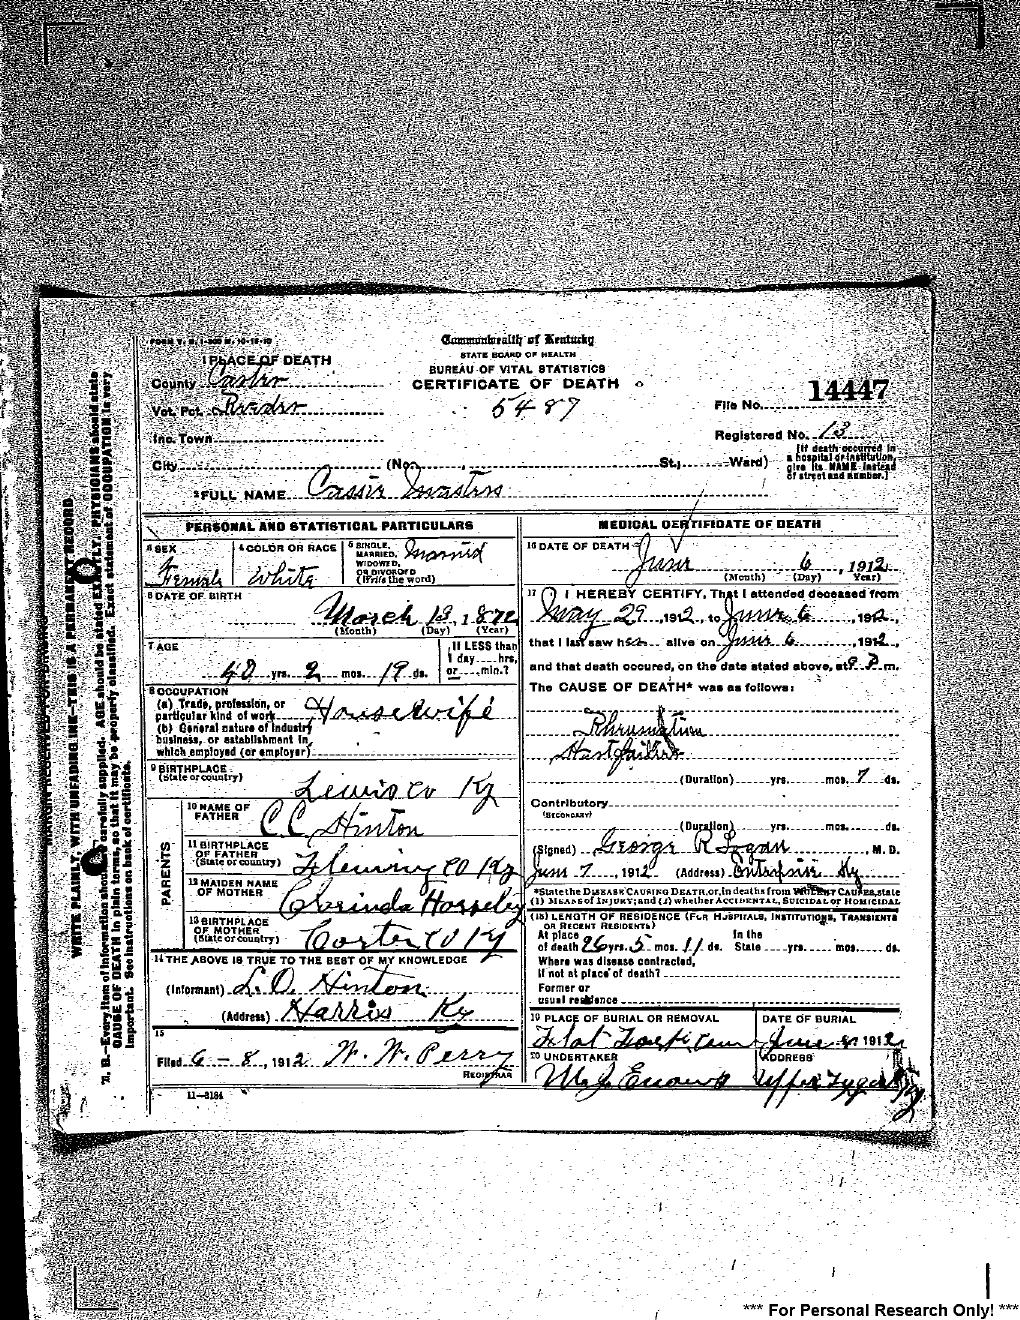 FORM V. S. 1-
Commonwealth of Kentucky
STATE BOARD OF HEALTH
BUREAU OF VITAL STATISTICS
CERTIFICATE OF DEATH
1 PLACE OF DEATH
County Carter
Vot. Pct.
Inc. Town
City (No. St., Ward)
5487
14447
File No.
Registered No. 13
[If death occurred in
a hospital or institution,
give its NAME instead
of street and number.]
2 FULL NAME Cassie
PERSONAL AND STATISTICAL PARTICULARS
3 SEX Female
4 COLOR OR RACE White
5 SINGLE, MARRIED, WIDOWED, OR DIVORCED (Write the word) Married
6 DATE OF BIRTH
March 13, 1872
(Month) (Day) (Year)
7 AGE
40 yrs. 2 mos. 19 ds.
If LESS than
1 day hrs.
or min.?
8 OCCUPATION
(a) Trade, profession, or
particular kind of work Housewife
(b) General nature of industry
business, or establishment in
which employed (or employer)
9 BIRTHPLACE
(State or country)
Lewis Co Ky
PARENTS
10 NAME OF FATHER C C Hinton
11 BIRTHPLACE OF FATHER (State or country) Fleming Co Ky
12 MAIDEN NAME OF MOTHER
13 BIRTHPLACE OF MOTHER (State or country) Carter Co Ky
14 THE ABOVE IS TRUE TO THE BEST OF MY KNOWLEDGE
(Informant) L. O. Hinton
(Address) Harris Ky
15
Filed 6-8, 1912 W. W. Perry
REGISTRAR
11-3184
MEDICAL CERTIFICATE OF DEATH
16 DATE OF DEATH
June 6, 1912
(Month) (Day) (Year)
17 I HEREBY CERTIFY, That I attended deceased from
May 29, 1912, to June 6, 1912,
that I last saw her alive on June 6, 1912,
and that death occured, on the date stated above, at 9 P. m.
The CAUSE OF DEATH* was as follows:
Rheumatism
Heart failure
(Duration) yrs. mos. 7 ds.
Contributory
(SECONDARY)
(Duration) yrs. mos. ds.
(Signed) George R Logan, M. D.
June 7, 1912 (Address) Enterprise Ky
*State the DISEASE CAUSING DEATH, or, in deaths from VIOLENT CAUSES, state
(1) MEANS OF INJURY; and (2) whether ACCIDENTAL, SUICIDAL or HOMICIDAL
(18) LENGTH OF RESIDENCE (FOR HOSPITALS, INSTITUTIONS, TRANSIENTS
OR RECENT RESIDENTS)
At place In the
of death 26 yrs. 5 mos. 11 ds. State yrs. mos. ds.
Where was disease contracted,
if not at place of death?
Former or
usual residence
19 PLACE OF BURIAL OR REMOVAL
Flat Fork Cem
DATE OF BURIAL
June 8, 1912
20 UNDERTAKER
ADDRESS
Upper Tygart Ky
MARGIN RESERVED FOR BINDING
WRITE PLAINLY, WITH UNFADING INK—THIS IS A PERMANENT RECORD
N. B.—Every item of information should be carefully supplied. AGE should be stated EXACTLY. PHYSICIANS should state
CAUSE OF DEATH in plain terms, so that it may be properly classified. Exact statement of OCCUPATION is very
important. See instructions on back of certificate.
*** For Personal Research Only! ***